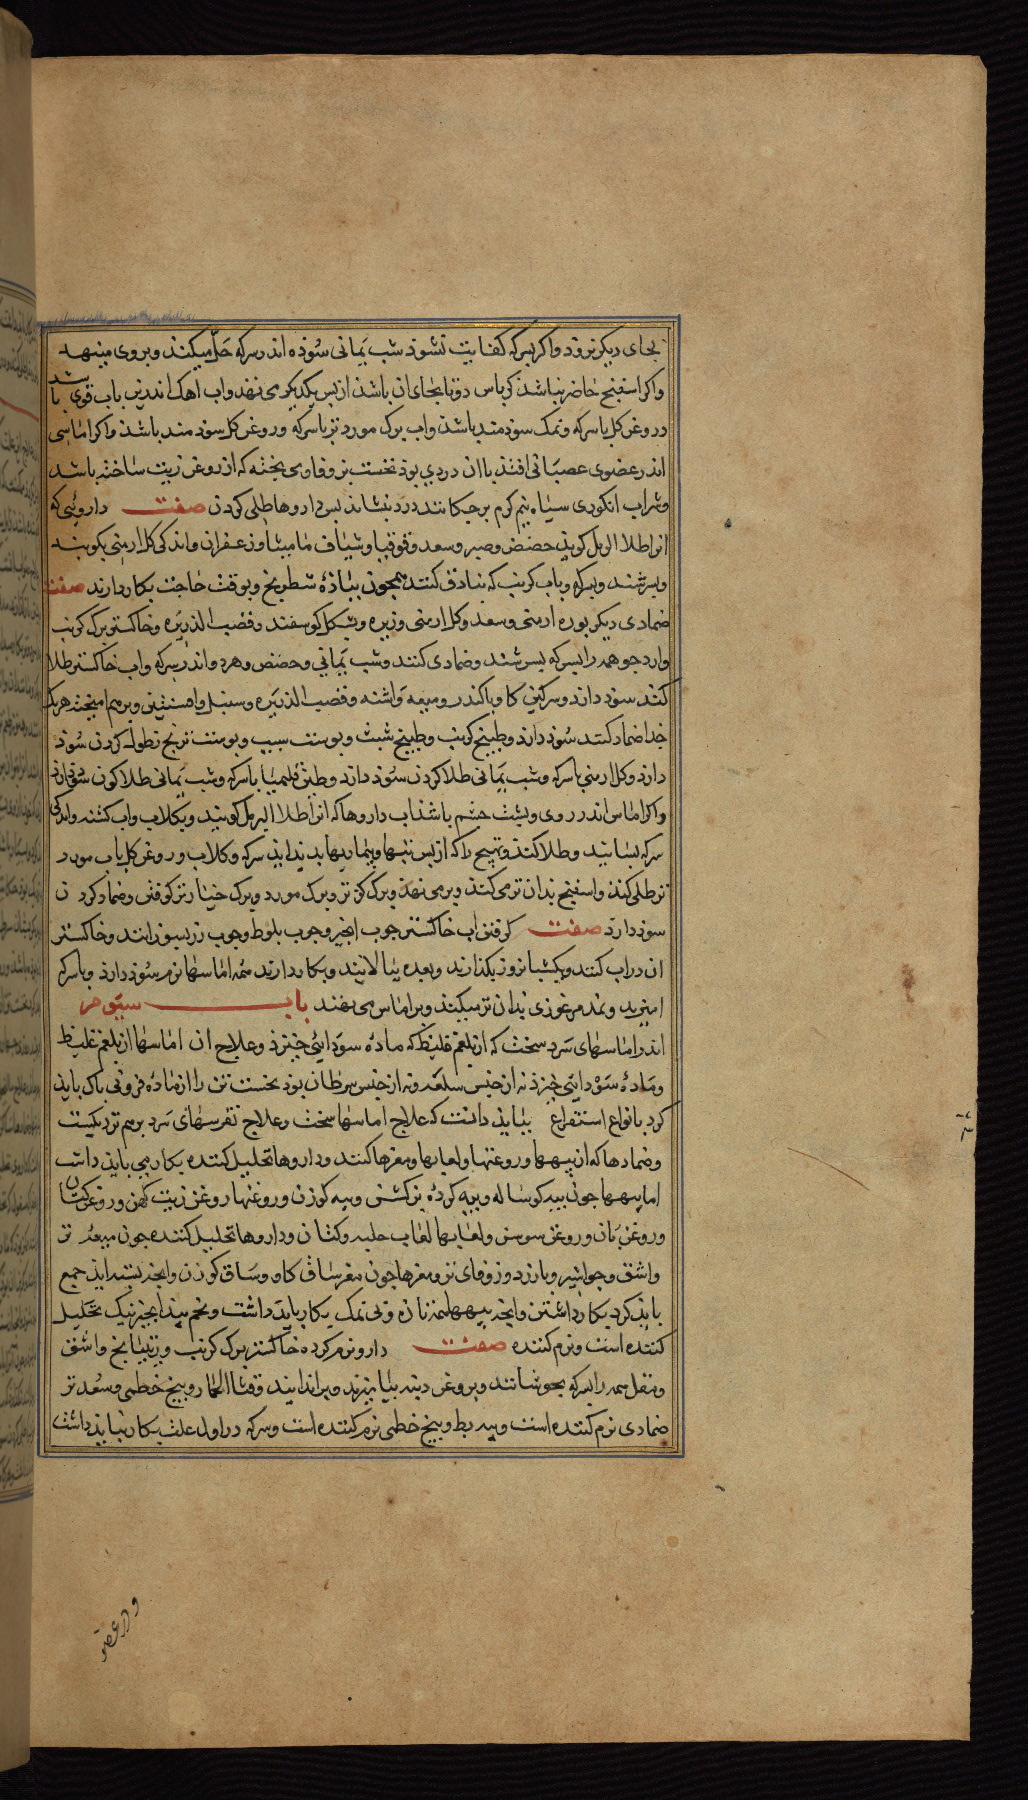 بجای دیکر نرود واکر بسرکه کفایت نشوذ شب یمانی سوده اندر سرکه حل میکنند و بروی مینهند
واکر اسفنج حاضر نباشد کرباس دوتا بجای ان باشد از بس یکدیکر می نهد واب اهک اندرین باب قوی باشد
و روغن کل باسرکه ونمک سودمند باشد واب برک مورد تر باسرکه و روغن کل سودمند باشد واکر اماسی
اندر عضوی عصبانی افتد با ان دردی بوذ نخست بزوفا وی بخته که از روغن زیت ساخته باشد
وشراب انکوری سیاه نیم کرم برجکانند درد بنشاند بس داروها طلی کردن صفت داروئی که
انرا طلا الرمل کویند حضض وصبر وسعد وفوفل وشیاف مامیثا وزعفران واندکی کل ارمنی بکوبند
وبسرشند وبسرکه وباب کرنب که بنادق کنند همجون بیاذه شطرنج وبوقت حاجت بکار دارند صفت
ضمادی دیکر بوره ارمنی وسعد وکل ارمنی وزیره وشکل کوسفند وقصب الذریره وخاکستر برک کرنب
وارد جو همه را بسرکه بسرشند وضمادی کنند وشب یمانی وحضض وهرد واندر سرکه واب خاکستر طلا
کنند سوذ دارد وسرکین کاو باکندر ومیعه واشنه وقصب الذریره وسنبل وافسنتین وبرهم امیخته هریک
جدا ضماد کنند سوذ دارد وطبیخ کرنب وطبیخ شبث وبوست سیب وبوست ترنج نطول کردن سوذ
دارد وکل ارمنی باسرکه وشب یمانی طلا کردن سوذ دارد وطین قیمولیا باسرکه وشب یمانی طلا کردن سوذ دارد
واکر اماس اندر روی وبشت جشم باشد اب داروها که انرا طلا الرمل کویند وبکلاب واب کشنه واندکی
سرکه بسایند وطلا کنند وتهیج را که از بس تبها وبیماریها بدید اید سرکه وکلاب و روغن کل باب مورد
تر طلی کنند واسفنج بدان تر می کنند وبرمی نهند وبرک کز تر وبرک مورد وبرک خیار تر کوفتن وضماد کردن
سوذ دارد صفت کرفتن اب خاکستر جوب انجیر وجوب بلوط وجوب رز بسوزانند وخاکستر
ان در اب کنند ویکشبانروز بکذارند وبعده ببالایند وبکار دارند همه اماسهاء نرم سوذ دارد وباسرکه
امیزند ونمد مرغزی بدان تر میکنند وبر اماس می نهند باب سیوم
اندر اماسهای سرد سخت که از بلغم غلیظ که ماده سودائی خیزد وعلاج ان اماسها از بلغم غلیظ
وماده سودایی خیزد نه از جنس سلعه ونه از جنس سرطان بوذ نخست تن را از ماده فزونی باک بایذ
کرد بانواع استفراغ ببایذ دانست که علاج اماسهاء سخت وعلاج نقرسهای سرد بهم نزدیکست
وضمادها که از بیهها وروغنها ولعابها ومغزها کنند وداروها تحلیل کننده بکار می بایذ داشت
اما بیهها جون بیه کوساله وبیه کرده بز کشنی وبیه کوزن وروغنها روغن زیت کهن وروغن کتان
وروغن بان وروغن سوسن ولعابها لعاب حلبه وکتان وداروها تحلیل کننده جون میعه تر
واشق وجوانشیر وبارزد وزوفای تر ومغزها جون مغز ساق کاو وساق کوزن وانجه بشبه اید جمع
باید کرد بکار داشتن وانجه بیهها همه تازه وبی نمک بکار باید داشت وتخم بیدانجیر نیک تحلیل
کننده است ونرم کننده صفت دارو نرم کرده خاکستر برک کرنب وزیتیانج واشق
ومقل همه را بسرکه بجوشانند وبروغن دنبه بیامیزند وبراندایند وقثاء الحمار وبیخ خطمی وسعد تر
ضمادی نرم کننده است وبیه بط وبیخ خطمی نرم کننده است وسرکه در اول علت بکار نباید داشت